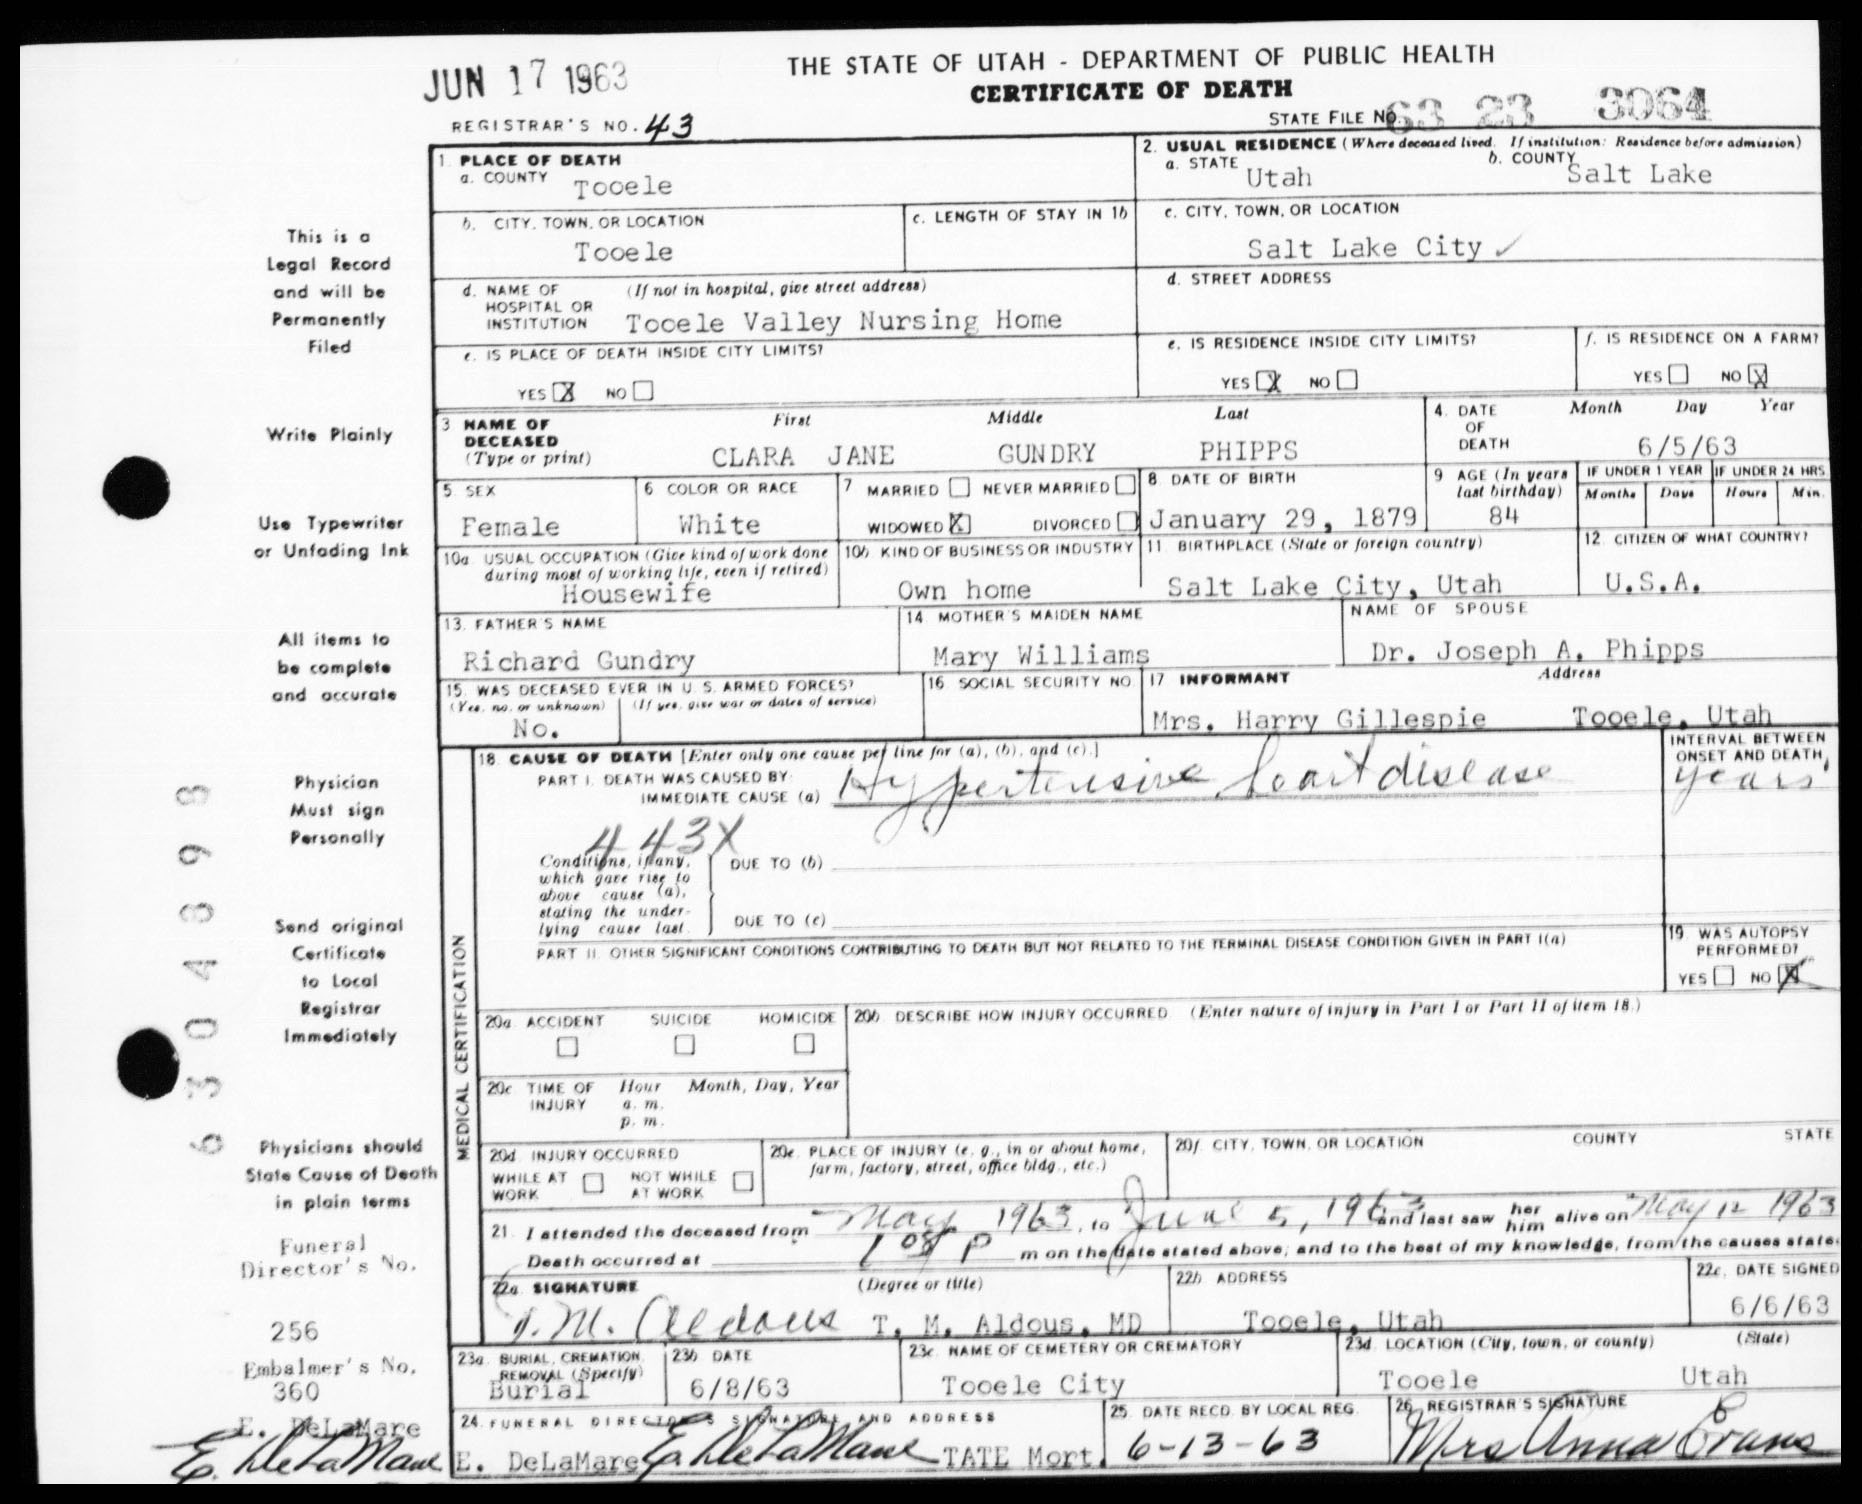 JUN 17 1963
THE STATE OF UTAH - DEPARTMENT OF PUBLIC HEALTH
CERTIFICATE OF DEATH
REGISTRAR'S NO. 43
STATE FILE NO. 63 23 3064
1. PLACE OF DEATH
a. COUNTY Tooele
2. USUAL RESIDENCE (Where deceased lived. If institution: Residence before admission)
a. STATE Utah b. COUNTY Salt Lake
b. CITY, TOWN, OR LOCATION Tooele
c. LENGTH OF STAY IN 1b
c. CITY, TOWN, OR LOCATION
Salt Lake City ✓
d. NAME OF HOSPITAL OR INSTITUTION (If not in hospital, give street address)
Tooele Valley Nursing Home
d. STREET ADDRESS
e. IS PLACE OF DEATH INSIDE CITY LIMITS?
YES X NO
e. IS RESIDENCE INSIDE CITY LIMITS?
YES X NO
f. IS RESIDENCE ON A FARM?
YES NO X
3 NAME OF DECEASED (Type or print)
First Middle Last
CLARA JANE GUNDRY PHIPPS
4. DATE OF DEATH Month Day Year
6/5/63
5. SEX
Female
6 COLOR OR RACE
White
7 MARRIED NEVER MARRIED
WIDOWED X DIVORCED
8 DATE OF BIRTH
January 29, 1879
9 AGE (In years last birthday)
84
IF UNDER 1 YEAR IF UNDER 24 HRS.
Months Days Hours Min.
10a. USUAL OCCUPATION (Give kind of work done during most of working life, even if retired)
Housewife
10b. KIND OF BUSINESS OR INDUSTRY
Own home
11. BIRTHPLACE (State or foreign country)
Salt Lake City, Utah
12. CITIZEN OF WHAT COUNTRY?
U.S.A.
13. FATHER'S NAME
Richard Gundry
14 MOTHER'S MAIDEN NAME
Mary Williams
NAME OF SPOUSE
Dr. Joseph A. Phipps
15. WAS DECEASED EVER IN U. S. ARMED FORCES?
(Yes, no, or unknown) (If yes, give war or dates of service)
No.
16. SOCIAL SECURITY NO
17 INFORMANT Address
Mrs. Harry Gillespie Tooele, Utah
MEDICAL CERTIFICATION
18. CAUSE OF DEATH [Enter only one cause per line for (a), (b), and (c).]
INTERVAL BETWEEN ONSET AND DEATH
PART I. DEATH WAS CAUSED BY:
IMMEDIATE CAUSE (a) Hypertensive heart disease years
443X
Conditions, if any, which gave rise to above cause (a), stating the underlying cause last.
DUE TO (b)
DUE TO (c)
PART II. OTHER SIGNIFICANT CONDITIONS CONTRIBUTING TO DEATH BUT NOT RELATED TO THE TERMINAL DISEASE CONDITION GIVEN IN PART I(a)
19. WAS AUTOPSY PERFORMED?
YES NO X
20a. ACCIDENT SUICIDE HOMICIDE
20b. DESCRIBE HOW INJURY OCCURRED (Enter nature of injury in Part I or Part II of item 18.)
20c. TIME OF INJURY Hour Month, Day, Year
a. m.
p. m.
20d. INJURY OCCURRED
WHILE AT WORK NOT WHILE AT WORK
20e. PLACE OF INJURY (e. g., in or about home, farm, factory, street, office bldg., etc.)
20f. CITY, TOWN, OR LOCATION COUNTY STATE
21. I attended the deceased from May 1963, to June 5, 1963 and last saw her him alive on May 12 1963
Death occurred at 1 P m on the date stated above; and to the best of my knowledge, from the causes state
22a. SIGNATURE (Degree or title)
T. M. Aldous T. M. Aldous, MD
22b. ADDRESS
Tooele, Utah
22c. DATE SIGNED
6/6/63
23a. BURIAL, CREMATION, REMOVAL (Specify)
Burial
23b DATE
6/8/63
23c. NAME OF CEMETERY OR CREMATORY
Tooele City
23d. LOCATION (City, town, or county) (State)
Tooele Utah
24. FUNERAL DIRECTOR'S SIGNATURE AND ADDRESS
E. DeLaMare E. DeLaMare TATE Mort.
25. DATE RECD. BY LOCAL REG.
6-13-63
26. REGISTRAR'S SIGNATURE
Mrs Anna B Evans
This is a
Legal Record
and will be
Permanently
Filed
Write Plainly
Use Typewriter
or Unfading Ink
All items to
be complete
and accurate
Physician
Must sign
Personally
Send original
Certificate
to Local
Registrar
Immediately
Physicians should
State Cause of Death
in plain terms
Funeral
Director's No.
256
Embalmer's No.
360
E. DeLaMare
E. DeLaMare
63048 98